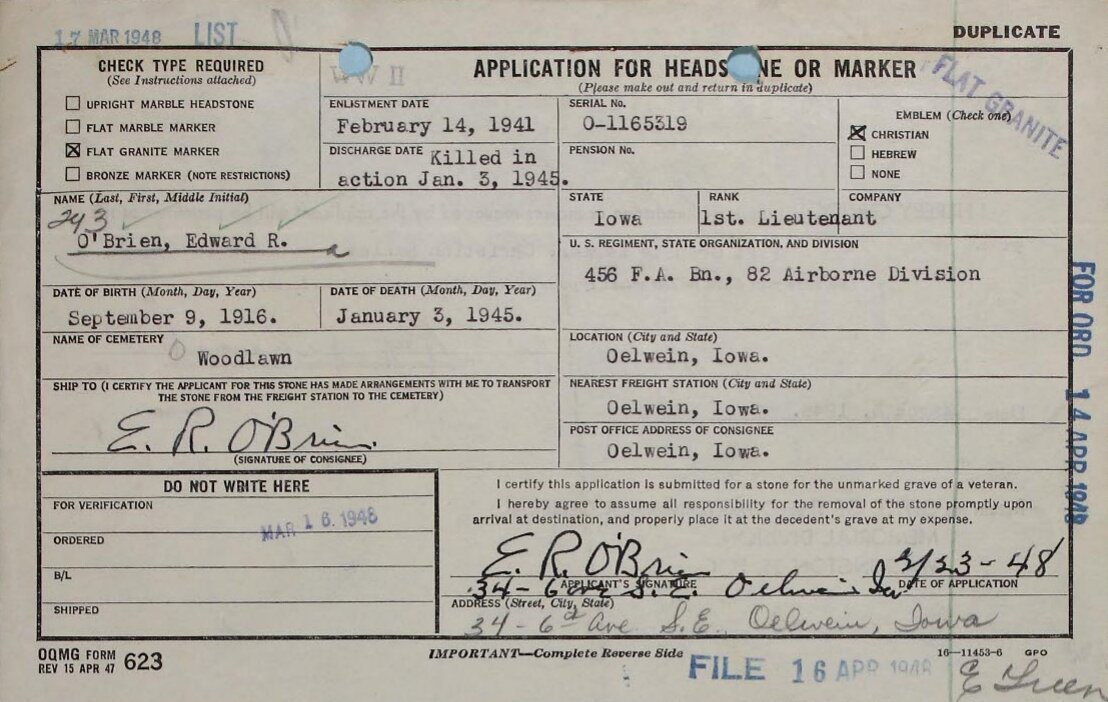 17 MAR 1948 LIST
DUPLICATE
CHECK TYPE REQUIRED
(See Instructions attached)
UPRIGHT MARBLE HEADSTONE
FLAT MARBLE MARKER
FLAT GRANITE MARKER
BRONZE MARKER (NOTE RESTRICTIONS)
WW II
APPLICATION FOR HEADS NE OR MARKER
(Please make out and return in duplicate)
FLAT GRANITE
ENLISTMENT DATE
February 14, 1941
DISCHARGE DATE Killed in
action Jan. 3, 1945.
SERIAL No.
O-1165319
PENSION No.
EMBLEM (Check one)
CHRISTIAN
HEBREW
NONE
NAME (Last, First, Middle Initial)
243
O'Brien, Edward R.
STATE
Iowa
RANK
1st. Lieutenant
COMPANY
U. S. REGIMENT, STATE ORGANIZATION, AND DIVISION
456 F.A. Bn., 82 Airborne Division
DATE OF BIRTH (Month, Day, Year)
September 9, 1916.
DATE OF DEATH (Month, Day, Year)
January 3, 1945.
NAME OF CEMETERY
Woodlawn
LOCATION (City and State)
Oelwein, Iowa.
SHIP TO (I CERTIFY THE APPLICANT FOR THIS STONE HAS MADE ARRANGEMENTS WITH ME TO TRANSPORT
THE STONE FROM THE FREIGHT STATION TO THE CEMETERY)
E. R. O'Brien
(SIGNATURE OF CONSIGNEE)
NEAREST FREIGHT STATION (City and State)
Oelwein, Iowa.
POST OFFICE ADDRESS OF CONSIGNEE
Oelwein, Iowa.
FOR ORD 14 APR 1948
DO NOT WRITE HERE
FOR VERIFICATION
MAR 16 1948
ORDERED
B/L
SHIPPED
I certify this application is submitted for a stone for the unmarked grave of a veteran.
I hereby agree to assume all responsibility for the removal of the stone promptly upon
arrival at destination, and properly place it at the decedent's grave at my expense.
E. R. O'Brien 2/23-48
APPLICANT'S SIGNATURE DATE OF APPLICATION
34-6 Ave S.E. Oelwein Ia
ADDRESS (Street, City, State)
34-6th Ave S.E. Oelwein, Iowa
OQMG FORM
REV 15 APR 47 623
IMPORTANT—Complete Reverse Side
FILE 16 APR 1948
16—11453-6 GPO